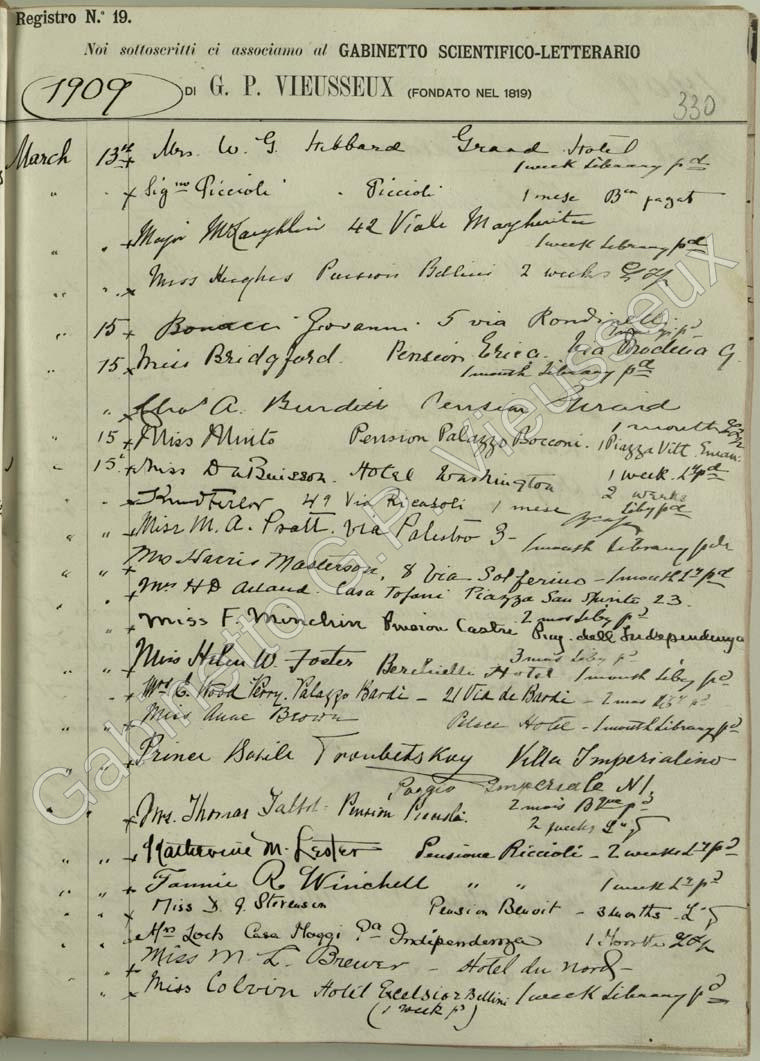 Registro N.° 19.
Noi sottoscritti ci associamo al GABINETTO SCIENTIFICO-LETTERARIO
1909 DI G. P. VIEUSSEUX (FONDATO NEL 1819)
330
March 13 Mrs. W. G. Hibbard Grand Hotel
1 week Library pd
Piccioli Piccioli 1 mese
Major McLaughlin 42 Viale Margherita
1 week Library pd
Miss Hughes Pension Bellini 2 weeks
15 Bonacci Giovanni 5 via Rondinelli
15 Miss Bridgford. Pension Erica. Via
1 month Library pd
A. Burdett Pension
1 month
15 Miss Minto Pension Palazzo Bocconi. 1 Piazza Vitt. Eman.
15 Miss DuBuisson. Hotel Washington 1 week
2 weeks
49 Via Ricasoli 1 mese Liby pd
Miss M. A. Pratt. Via Palestro 3 -
1 month Library pd
Harris Masterson, 8 Via Solferino - 1 month
Mrs H D Casa Tofani Piazza San Spirito 23.
2 mos Liby pd
Miss F. Minchin Pension Castri Piaz. dell'Independenza
3 mos Liby pd
Miss Helen W. Foster Berchielli Hotel 1 month Liby pd
Mrs C. Wood Perry. Palazzo Bardi - 21 Via de Bardi - 2 mos
Miss Anne Brown Palace Hotel - 1 month Library pd
Prince Troubetskoy Villa Imperialino
Poggio Imperiale
2 mois
Mrs. Thomas Talbot - Pension
2 weeks
Katherine M. Lester Pensione Riccioli - 2 weeks
Fannie R Winchell " " 1 week
Miss D. J. Stevenson Pension Benoit - 3 months -
Mrs Loch Casa Maggi Independenza 1 Month
Miss M. L. Brewer - Hotel du Nord -
Miss Colvin Hotel Excelsior Bellini 1 week Library pd
(1 week pd)
Gabinetto G.P. Vieusseux